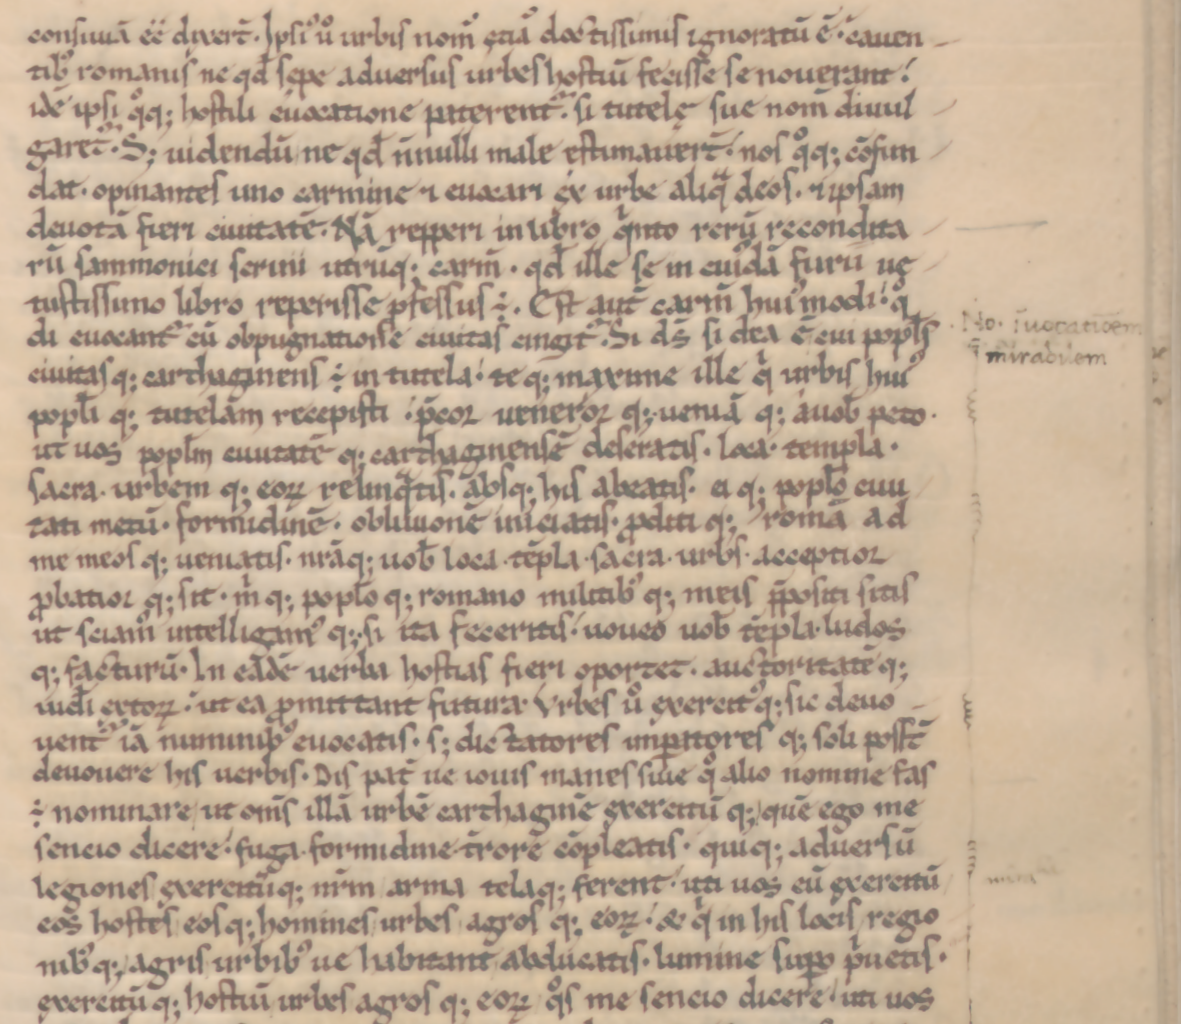 consiuiā eē dixer̄t. Ipsiꝰ uͦ urbis nom̄ ꝯtiā doctissimis ignoratū ē. cauen
tibꝰ romanis ne qd̄ sepe aduersus urbes hostiū fecisse se nouerant:
idē ipsi qͦq; hostili euocatione paterentᷣ. si tutelę sue nom̄ diuul
garet᷑. S; uidendū ne qd̄ n̄nulli male estimauer̄t: nos qͦq; cōfun
dat. opinantes uno carmine ⁊ euocari ex urbe aliqᵃ deos. ⁊ ipsam
deuotā fieri ciuitatē. Nā repperi in libro qͥnto rerū recondita
rū sammonici sereni utrūq; carm̄. qd̄ ille se in cuiꝰdā furii ue
tustissimo libro reperisse ꝓfessus ÷. Est aut̄ carm̄ huiꝰmodi: qͦ
di euocantᷣ cū obpugnatiōe ciuitas cingitᷣ. Si ds̄ si dea ē cui popls̄
ciuitas q; carthaginens̄ ÷ in tutela: te q; maxime ille qͥ urbis huiꝰ
popl̄i q; tutelam recepisti: p̄cor ueneror q; ueniā q; a uob̄ peto.
ut uos popl̄m ciuitatē q; carthaginensē deseratis. loca templa.
sacra. urbem q; eoꝝ relinqᵃtis. absq; his abeatis. ei q; popl̄o ciui
tati metū. formidinē. obliuionē iniciatis. ꝓditi q; romā ad
me meos q; ueniatis. nrāq; uob̄ loca. tēpla. sacra. urbs̄. acceptior
ꝓbatior q; sit. m̄ q; popl̄o q; romano militibꝰ q; meis p̄positi sitis
ut sciamꝰ intelligamꝰ q; si ita feceritis: uoueo uob̄ tēpla. ludos
q; facturū. In eadē uerba hostias fieri oportet. auctoritatē q;
uidi extoꝝ: ut ea ꝓmittant futura. Vrbes uͦ exercitꝰ q; sic deuo
uentᷣ iā numinibꝰ euocatis. s; dictatores imꝑatores q; soli poss̄t
deuouere his uerbis. Dis pat̄ ue iouis manes siue qͦ alio nomine fas
÷ nominare ut om̄s illā urbē carthaginē exercitū q; quē ego me
sencio dicere. fuga. formidine t̄rore cōpleatis. quiq; aduersū
legiones exercitūq; nr̄m arma telaq; ferent. uti uos eū exercitū
eos hostes eosq; homines urbes agros q; eoꝝ: & qͥ in his locis regio
nibꝰ q; agris urbibꝰ ue habitant abducatis. lumine supo p̄uetis.
exercitū q; hostiū urbes agros q; eoꝝ qͦs me sencio dicere uti uos
No. īuocatiōem
mirabilem